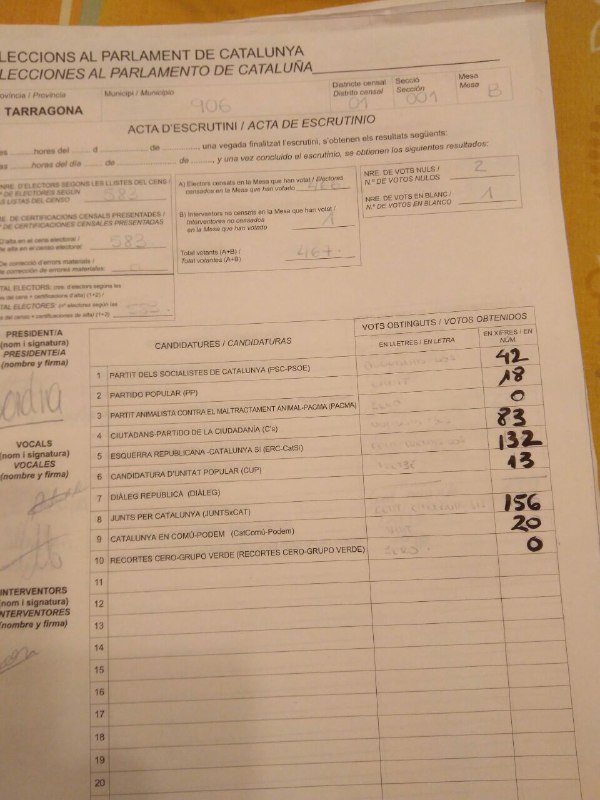 LECCIONS AL PARLAMENT DE CATALUNYA
LECCIONES AL PARLAMENTO DE CATALUÑA
ovíncia / Provincia
Municipi / Municipio
Districte censal
Distrito censal
Secció
Sección
Mesa
Mesa
TARRAGONA
906
01
001
B
ACTA D'ESCRUTINI / ACTA DE ESCRUTINIO
hores del d de de , una vegada finalitzat l'escrutini, s'obtenen els resultats següents:
horas del día de de , y una vez concluido el escrutinio, se obtienen los siguientes resultados:
NRE. D'ELECTORS SEGONS LES LLISTES DEL CENS /
º DE ELECTORES SEGÚN
S LISTAS DEL CENSO
583
E. DE CERTIFICACIONS CENSALS PRESENTADES /
DE CERTIFICACIONES CENSALES PRESENTADAS
D'alta en el cens electoral /
de alta en el censo electoral 583
De correcció d'errors materials /
de corrección de errores materiales:
TAL ELECTORS: (nre. d'electors segons les
s del cens + certificacions d'alta) (1+2) /
TAL ELECTORES: (nº electores según las
s del censo + certificaciones de alta) (1+2)
A) Electors censats en la Mesa que han votat / Electores
censados en la Mesa que han votado 466
B) Interventors no censats en la Mesa que han votat /
Interventores no censados
en la Mesa que han votado 1
Total votants (A+B) /
Total votantes (A+B) 467
NRE. DE VOTS NULS /
N.º DE VOTOS NULOS 2
NRE. DE VOTS EN BLANC /
N.º DE VOTOS EN BLANCO 1
PRESIDENT/A
(nom i signatura)
PRESIDENTE/A
(nombre y firma)
VOCALS
(nom i signatura)
VOCALES
(nombre y firma)
INTERVENTORS
(nom i signatura)
INTERVENTORES
(nombre y firma)
CANDIDATURES / CANDIDATURAS
VOTS OBTINGUTS / VOTOS OBTENIDOS
EN LLETRES / EN LETRA
EN XIFRES / EN NÚM.
1 PARTIT DELS SOCIALISTES DE CATALUNYA (PSC-PSOE) 42
2 PARTIDO POPULAR (PP) 18
3 PARTIT ANIMALISTA CONTRA EL MALTRACTAMENT ANIMAL-PACMA (PACMA) 0
4 CIUTADANS-PARTIDO DE LA CIUDADANÍA (C's) 83
5 ESQUERRA REPUBLICANA -CATALUNYA SÍ (ERC-CatSí) 132
6 CANDIDATURA D'UNITAT POPULAR (CUP) 13
7 DIÀLEG REPUBLICÀ (DIÀLEG)
8 JUNTS PER CATALUNYA (JUNTSxCAT) 156
9 CATALUNYA EN COMÚ-PODEM (CatComú-Podem) 20
10 RECORTES CERO-GRUPO VERDE (RECORTES CERO-GRUPO VERDE) 0
11
12
13
14
15
16
17
18
19
20